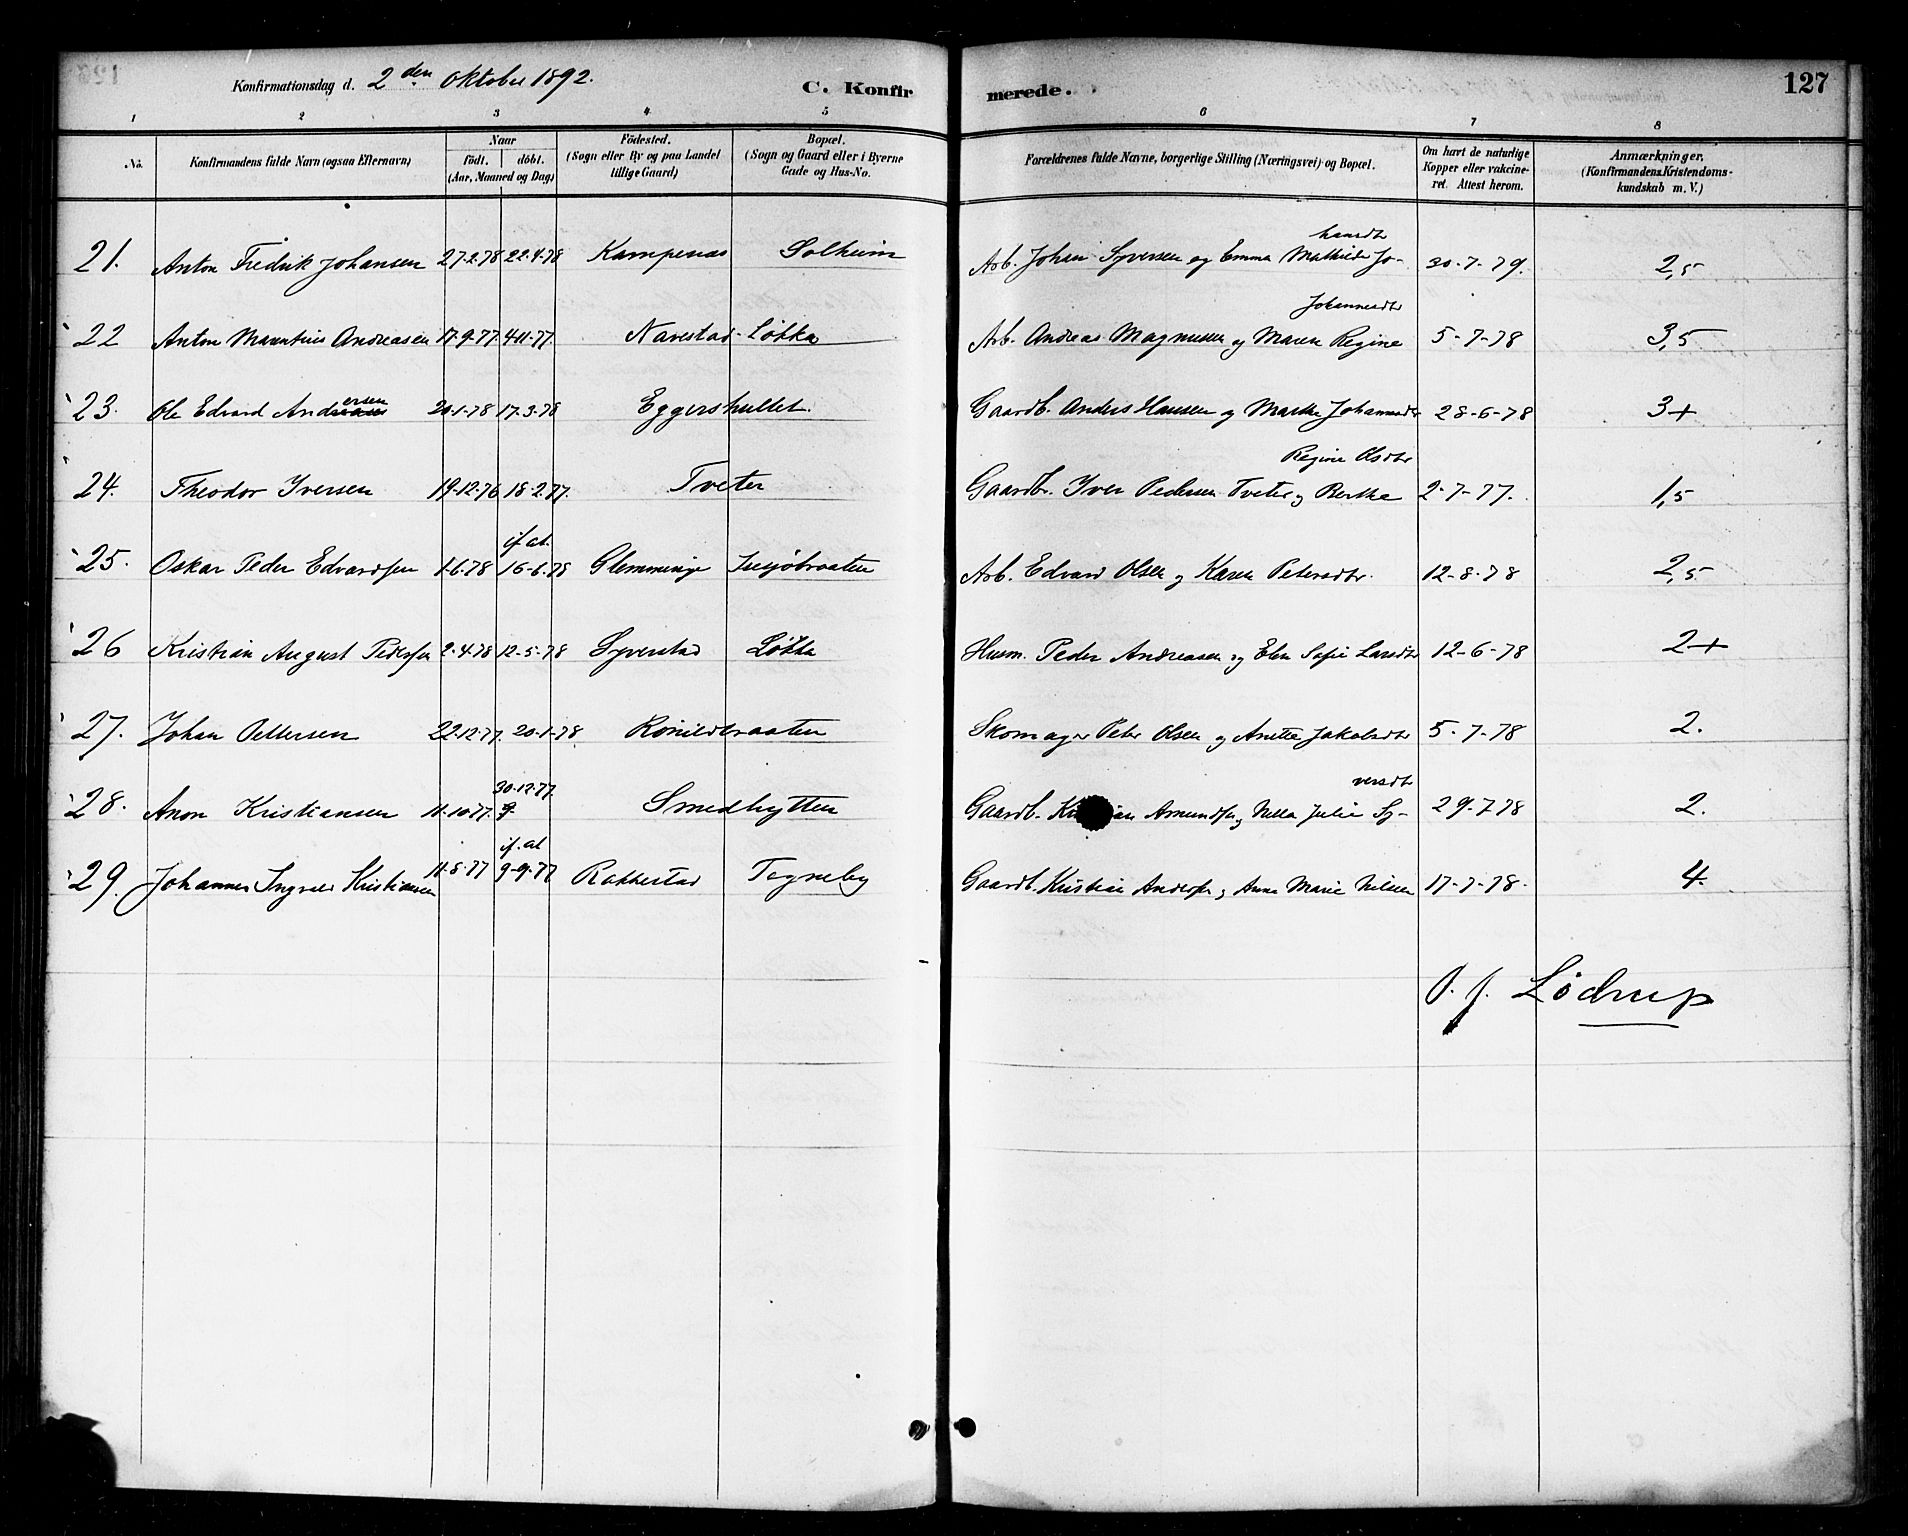 Konfirmationsdag d. 2den Oktober 1892. C. Konfirmerede. 127
1 2 3 4 5 6 7 8
No. Konfirmandens fulde Navn (ogsaa Efternavn) Naar födt. döbt. (Aar, Maaned og Dag) Födested. (Sogn eller By og paa Landet tillige Gaard) Bopæl. (Sogn og Gaard eller i Byerne Gade og Hus-No. Forældrenes fulde Navne, borgerlige Stilling (Næringsvei) og Bopæl. Om havt de naturlige Kopper eller vakcineret. Attest herom. Anmærkninger. (Konfirmandens Kristendomskundskab m. V.)
21. Anton Fredrik Johansen 27-2-78 22-4-78 Kampenæs Solheim Arb. Johan Syversen og Emma Mathilde Johansdtr 30-7-79. 2,5
22 Anton Marentius Andreasen 17-9-77 4-11-77. Navestad Løkka Arb. Andreas Magnusen og Maren Regine Johannesdtr 5-7-78 3,5
23. Ole Edvard Andersen 20-1-78 17-3-78 Eggershullet. Gaardb. Anders Hansen og Marthe Johannesdtr 28-6-78 3+
24. Theodor Iversen 19-12-76 18-2-77. Tveter Gaardbr. Iver Pedersen Tveter og Berthe Regine Olsdtr 2-7-77. 1,5
25. Oskar Peder Edvardsen 1-6-78 if. at. 16-6-78 Glemminge Arb. Edvard Olsen og Karen Petersdtr. 12-8-78 2,5
26 Kristian August Pedersen 2-4-78 12-5-78 Syverstad Løkka Husm. Peder Andreasen og Elen Sofie Larsdtr 12-6-78 2+
27. Johan Pettersen 22-12-77. 20-1-78 Rønildbraaten Skomager Peter Olsen og Anette Jakobsdtr 5-7-78 2.
28. Anon Kristiansen 11-10-77. 30-12-77 Smedhytten Gaardb. Kristian Amundsen og Nella Julie Syversdtr 29-7-78 2.
29. Johannes Ingvald Kristiansen 11-5-77 if. at 9-9-77 Rakkestad Tegneby Gaardb. Kristian Andersen og Anna Marie Nilsen 17-7-78. 4.
O. J. Lødrup